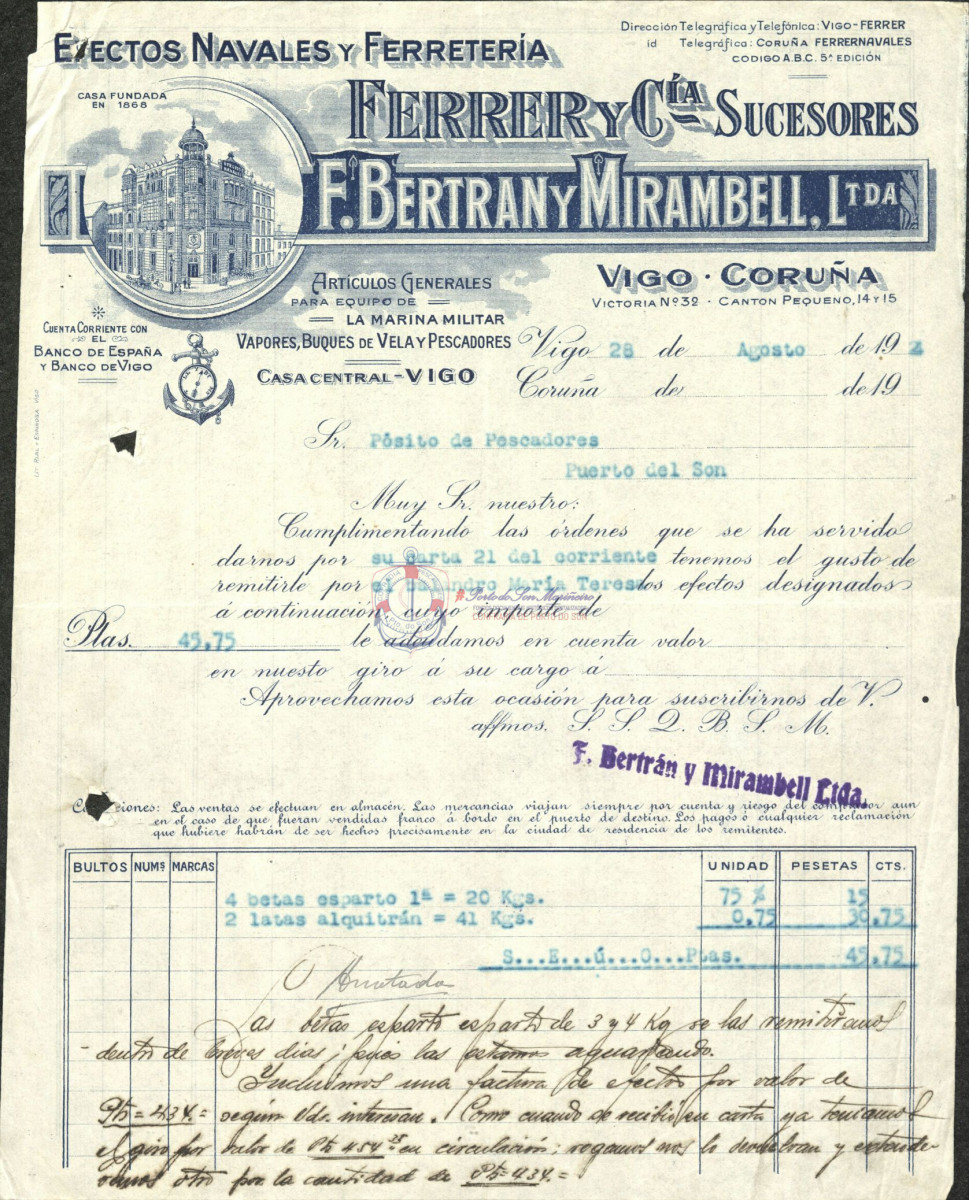 Efectos Navales y Ferretería
Dirección Telegráfica y Telefónica: VIGO-FERRER
id Telegráfica: CORUÑA FERRERNAVALES
CODIGO A.B.C. 5ª EDICIÓN
CASA FUNDADA
EN 1868
FERRER Y Cía SUCESORES
F. BERTRAN Y MIRAMBELL, LTDA
VIGO · CORUÑA
VICTORIA Nº 32 · CANTON PEQUENO, 14 Y 15
ARTÍCULOS GENERALES
PARA EQUIPO DE
LA MARINA MILITAR
VAPORES, BUQUES DE VELA Y PESCADORES
CASA CENTRAL - VIGO
CUENTA CORRIENTE CON
EL
BANCO DE ESPAÑA
Y BANCO DE VIGO
Vigo 28 de Agosto de 192
Coruña de de 19
Sr. Pósito de Pescadores
Puerto del Son
Muy Sr. nuestro:
Cumplimentando las órdenes que se ha servido
darnos por su carta 21 del corriente tenemos el gusto de
remitirle por el balandro María Teresa los efectos designados
á continuación cuyo importe de
# Porto do Son Mariñeiro
CONFRARÍA DE PORTO DO SON
Ptas. 45,75 le adeudamos en cuenta valor
en nuesto giro á su cargo á
Aprovechamos esta ocasión para suscribirnos de V.
affmos. S. S. Q. B. S. M.
F. Bertrán y Mirambell Ltda.
Las ventas se efectuan en almacén. Las mercancias viajan siempre por cuenta y riesgo del comprador aun
en el caso de que fueran vendidas franco á bordo en el puerto de destino. Los pagos ó cualquier reclamación
que hubiere habrán de ser hechos precisamente en la ciudad de residencia de los remitentes.
BULTOS NUMS MARCAS UNIDAD PESETAS CTS.
4 betas esparto 1ª = 20 Kgs. 75 % 15
2 latas alquitrán = 41 Kgs. 0.75 30,75
S...E...ú...O...Ptas. 45,75
Anotada
Las betas esparto esparto de 3 y 4 Kg se las remitiramos
dentro de breves dias; pues las estamos aguardando.
Incluimos una factura de efectos por valor de
Pts = 434 = según Vds. interesan. Como cuando se recibió su carta ya teniamos
el giro por valor de Pts 454 25 en circulación; rogamos nos lo devuelvan y extende-
remos otro por la cantidad de Pts = 434. =